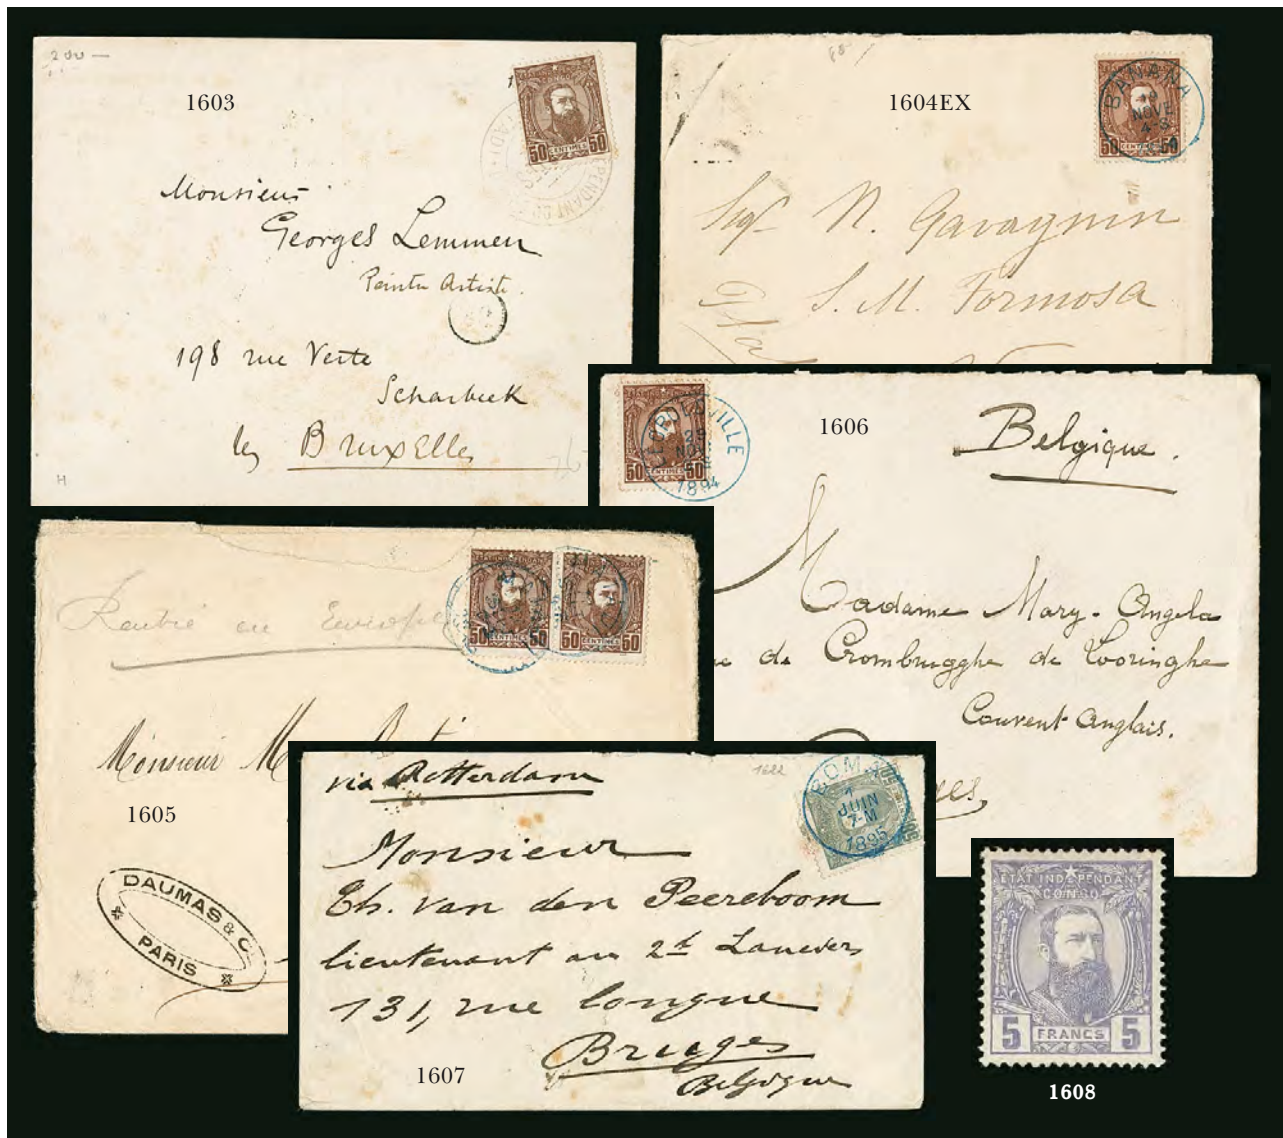 200 —
1603
50 CENTIMES 50
Monsieur
Georges Lemmen
Peintre Artiste.
198 rue Verte
Scharbeek
les Bruxelles
H
1604EX
BANANA
NOVE
50 50
Sigr N. Gavagnin
S. M. Formosa
1606
VILLE
NOV
1894
50 CENTIMES 50
Belgique.
Madame Mary-Angela
de Crombrugghe de Looringhe
Couvent Anglais.
50 CENTIMES 50
50 CENTIMES 50
Monsieur
1605
DAUMAS & C.
PARIS
1622
via Rotterdam
BOMA
1
JUIN
7-M
1895
Monsieur
Th. van den Peereboom
lieutenant au 2d Lanciers
131, rue longue
Bruges
Belgique
1607
ETAT INDEPENDANT
CONGO
5 FRANCS 5
1608